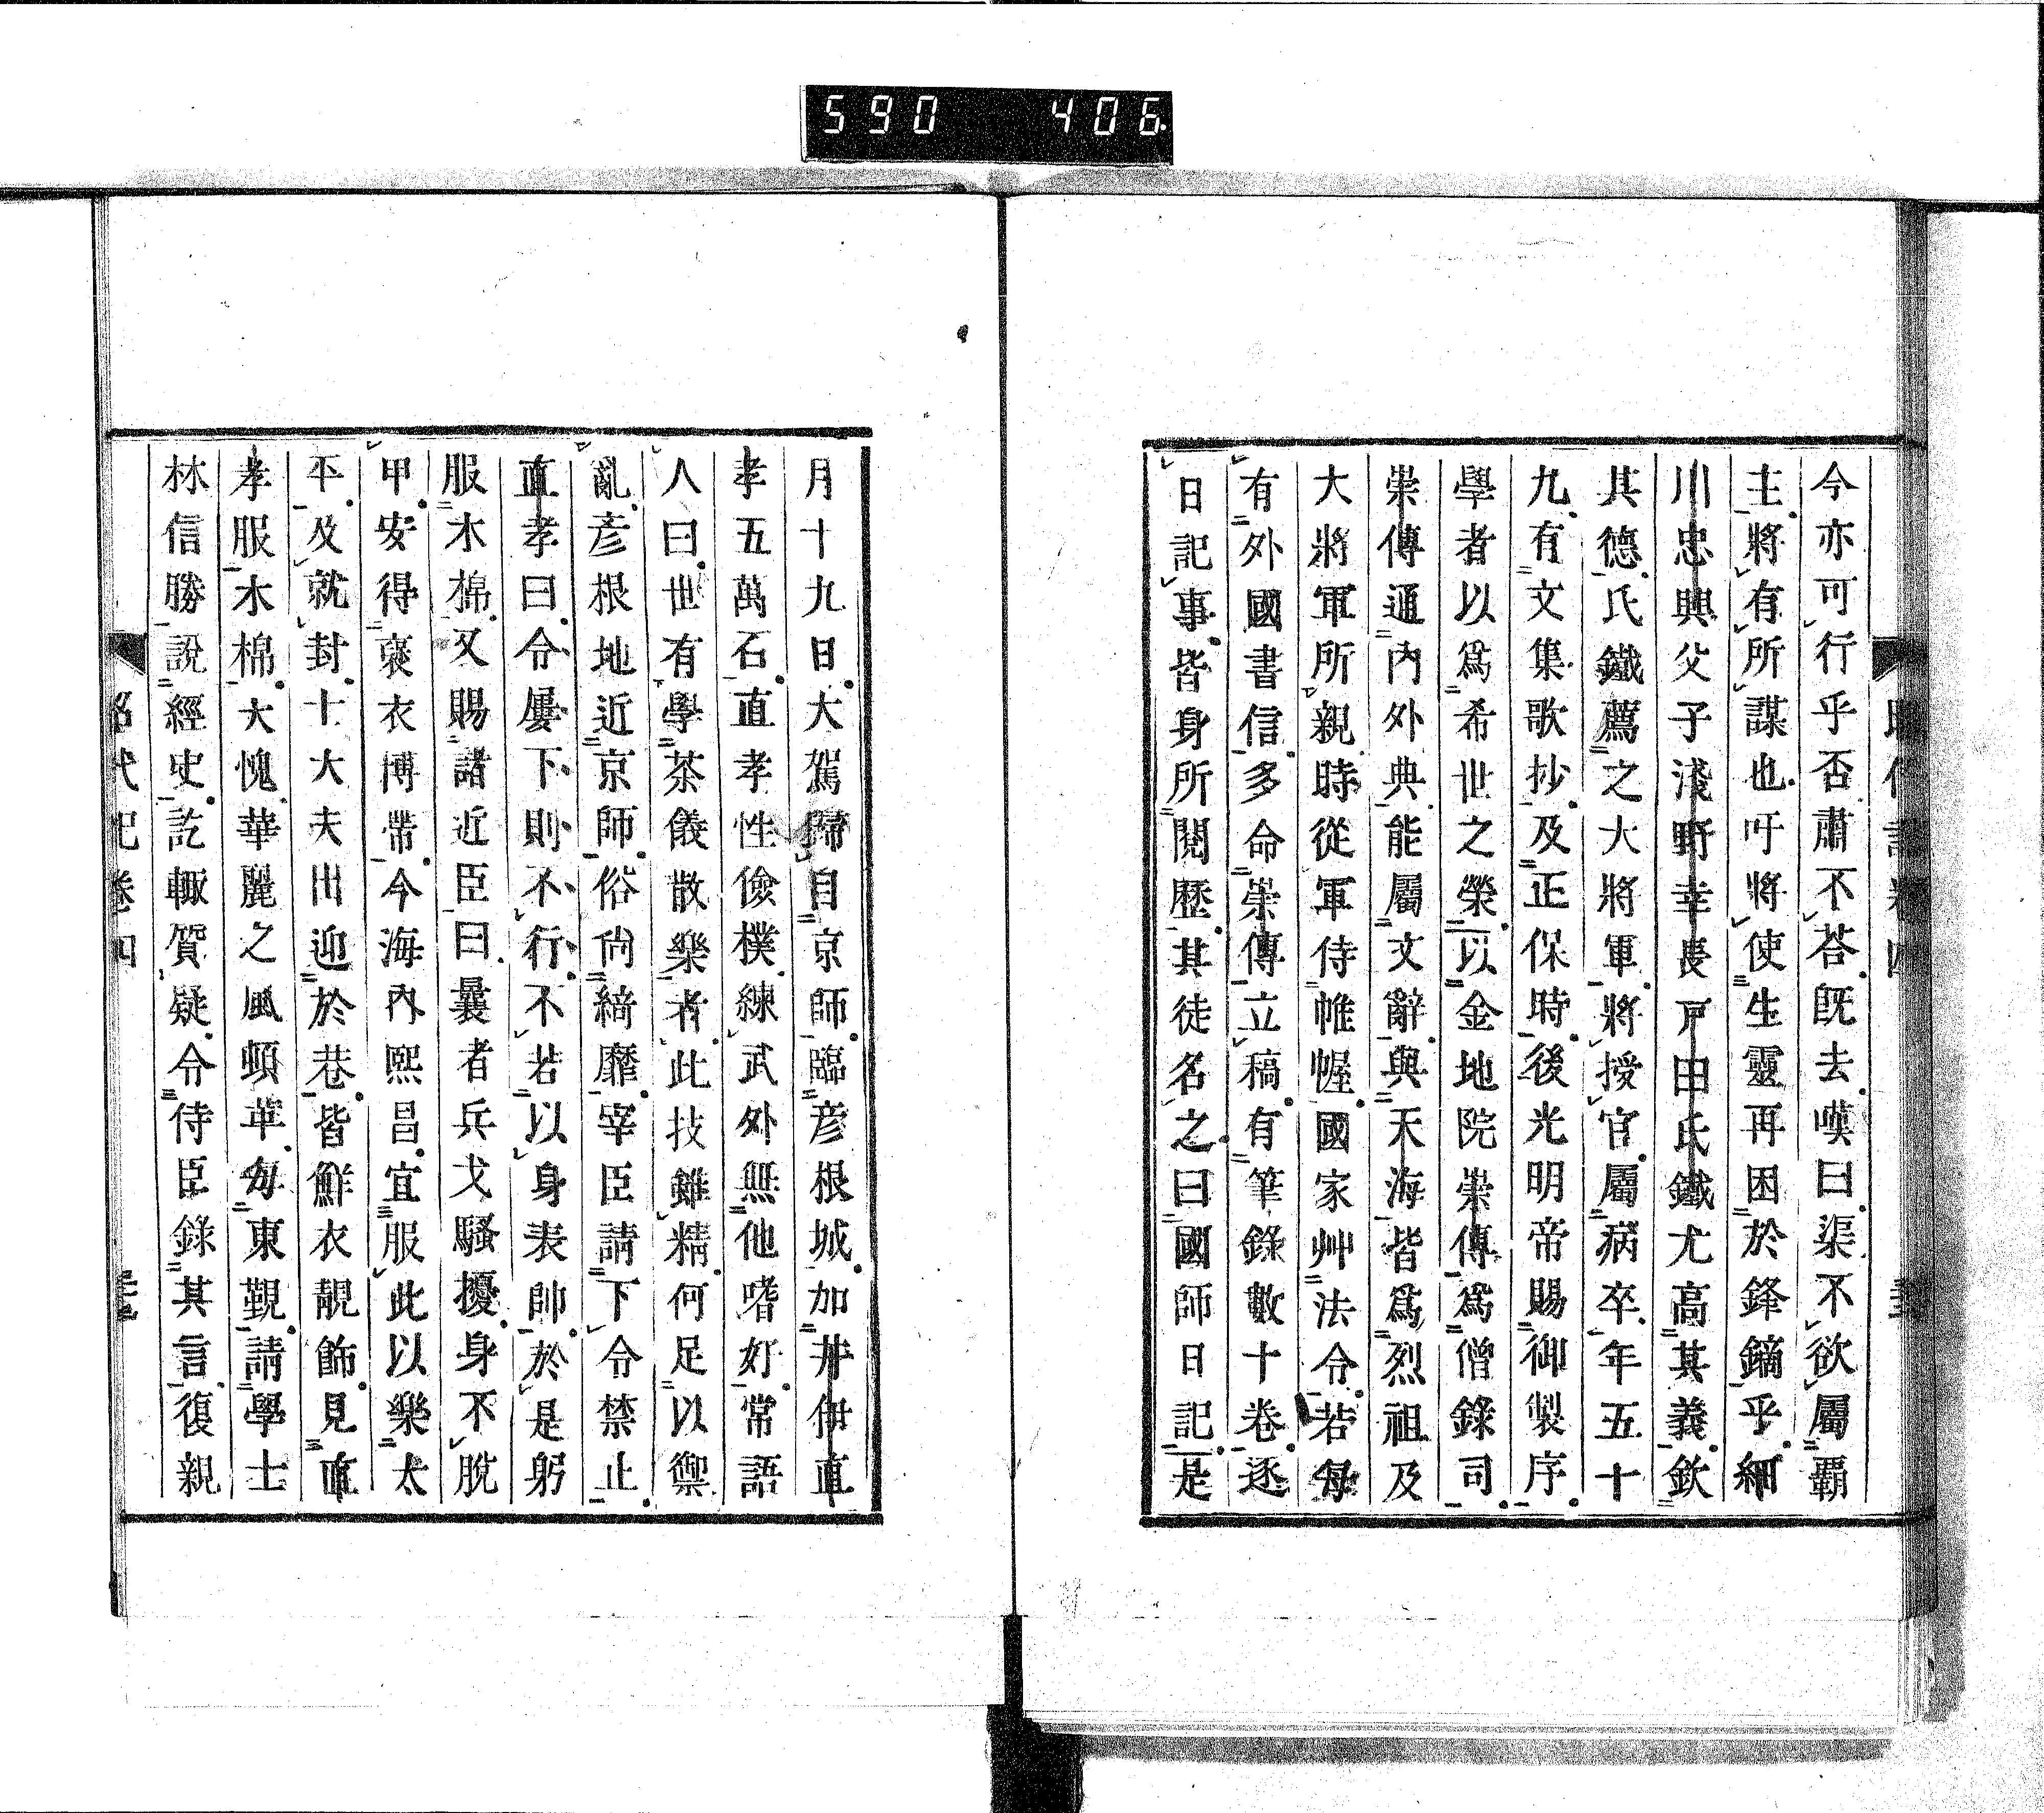 590 406
今亦可行乎否肅不荅既去嘆曰渠不欲屬覇
主將有所謀也吁將使生靈再困於鋒鏑乎細
川忠興父子淺野幸長戸田氏鐵尤高其義欽
其德氏鐵薦之大將軍將授官屬病卒年五十
九有文集歌抄及正保時後光明帝賜御製序
學者以爲希世之榮以金地院崇傳爲僧錄司
崇傳通內外典能屬文辭與天海皆爲烈祖及
大將軍所親時從軍侍帷幄國家艸法令若每
有外國書信多命崇傳立稿有筆錄數十卷逐
日記事皆身所閱歷其徒名之曰國師日記是
月十九日大駕歸自京師臨彥根城加井伊直
孝五萬石直孝性儉樸練武外無他嗜好常語
人曰世有學茶儀散樂者此技雖精何足以禦
亂彥根地近京師俗尙綺靡宰臣請下令禁止
直孝曰令屢下則不行不若以身表帥於是躬
服木棉又賜諸近臣曰曩者兵戈騷擾身不脫
甲安得褒衣博帶今海內熙昌宜服此以樂太
平及就封士大夫出迎於巷皆鮮衣靚飾見直
孝服木棉大愧華麗之風頓革每東覲請學士
林信勝說經史訖輙質疑令侍臣錄其言復親
昭代記卷四